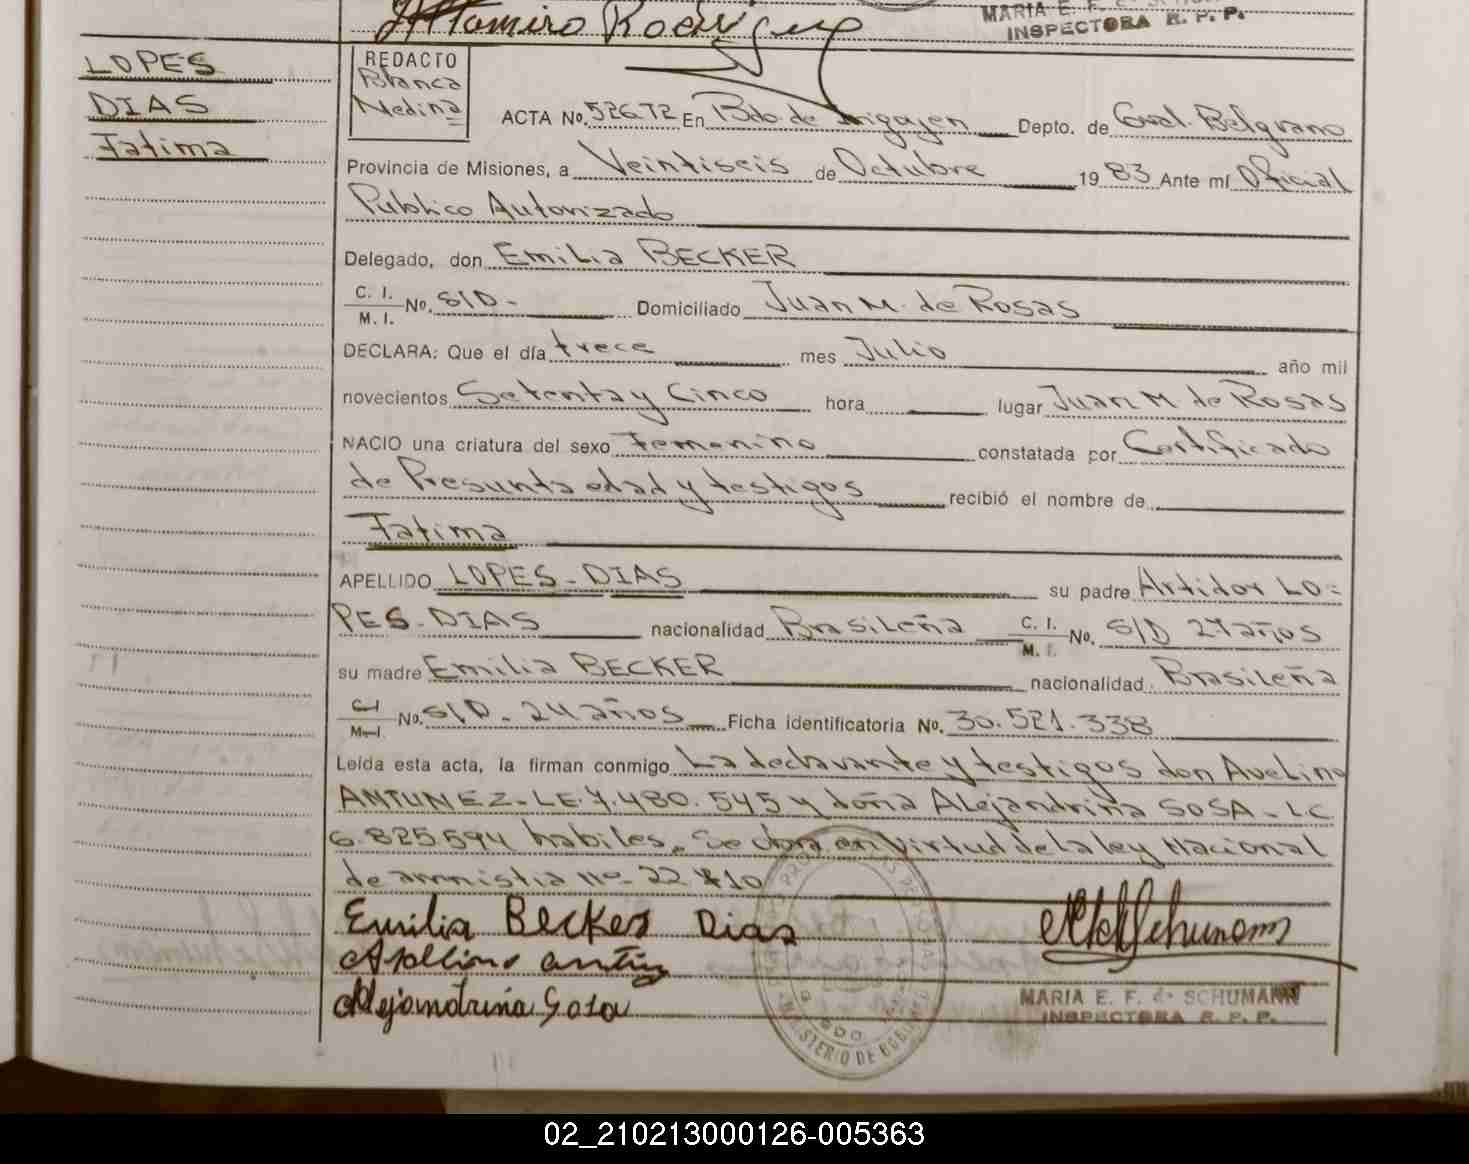 Altamiro Rodriguez
MARIA E. F.
INSPECTORA R. P. P.
LOPES
DIAS
Fatima
REDACTO
Blanca
Medina
ACTA No. 526 T2 En Bdo. de Irigoyen Depto. de Gral. Belgrano
Provincia de Misiones, a Veintiseis de Octubre 1983 Ante mí Oficial
Publico Autorizado
Delegado, don Emilia BECKER
C. I.
M. I. No. S/D - Domiciliado Juan M. de Rosas
DECLARA: Que el día trece mes Julio año mil
novecientos Setenta y Cinco hora lugar Juan M de Rosas
NACIO una criatura del sexo Femenino constatada por Certificado
de Presunta edad y testigos recibió el nombre de
Fatima
APELLIDO LOPES - DIAS su padre Artidor LO=
PES - DIAS nacionalidad Brasileña C. I. M. I. No. S/D 27 años
su madre Emilia BECKER nacionalidad Brasileña
C. I. M. I. No. S/D - 24 años Ficha identificatoria No. 30.521.338
Leída esta acta, la firman conmigo La declarante y testigos don Avelino
ANTUNEZ - LE. 7.480.545 y doña Alejandrina SOSA - LC
6.825.594 habiles. Se obra en virtud de la ley Nacional
de amnistia no. 22 410
Emilia Becker Dias
Alejandrina Sosa
MARIA E. F. de SCHUMANN
INSPECTORA R. P. P.
MINISTERIO DE GOBIERNO
02_210213000126-005363